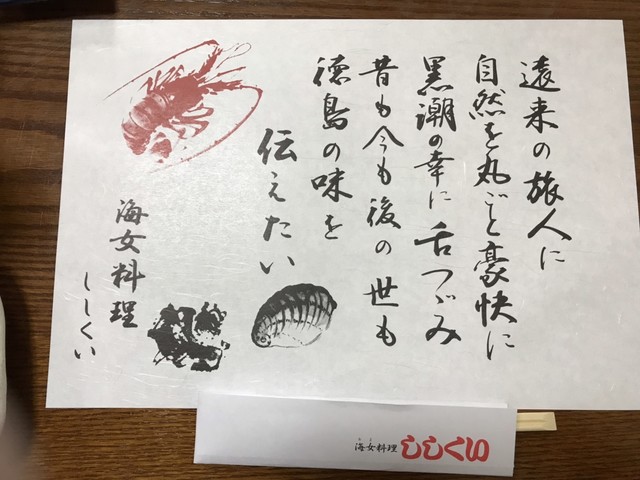 遠来の旅人に
自然を丸ごと豪快に
黒潮の幸に舌つゞみ
昔も今も後の世も
徳島の味を
伝えたい
海女料理
ししくい
海女料理 ししくい